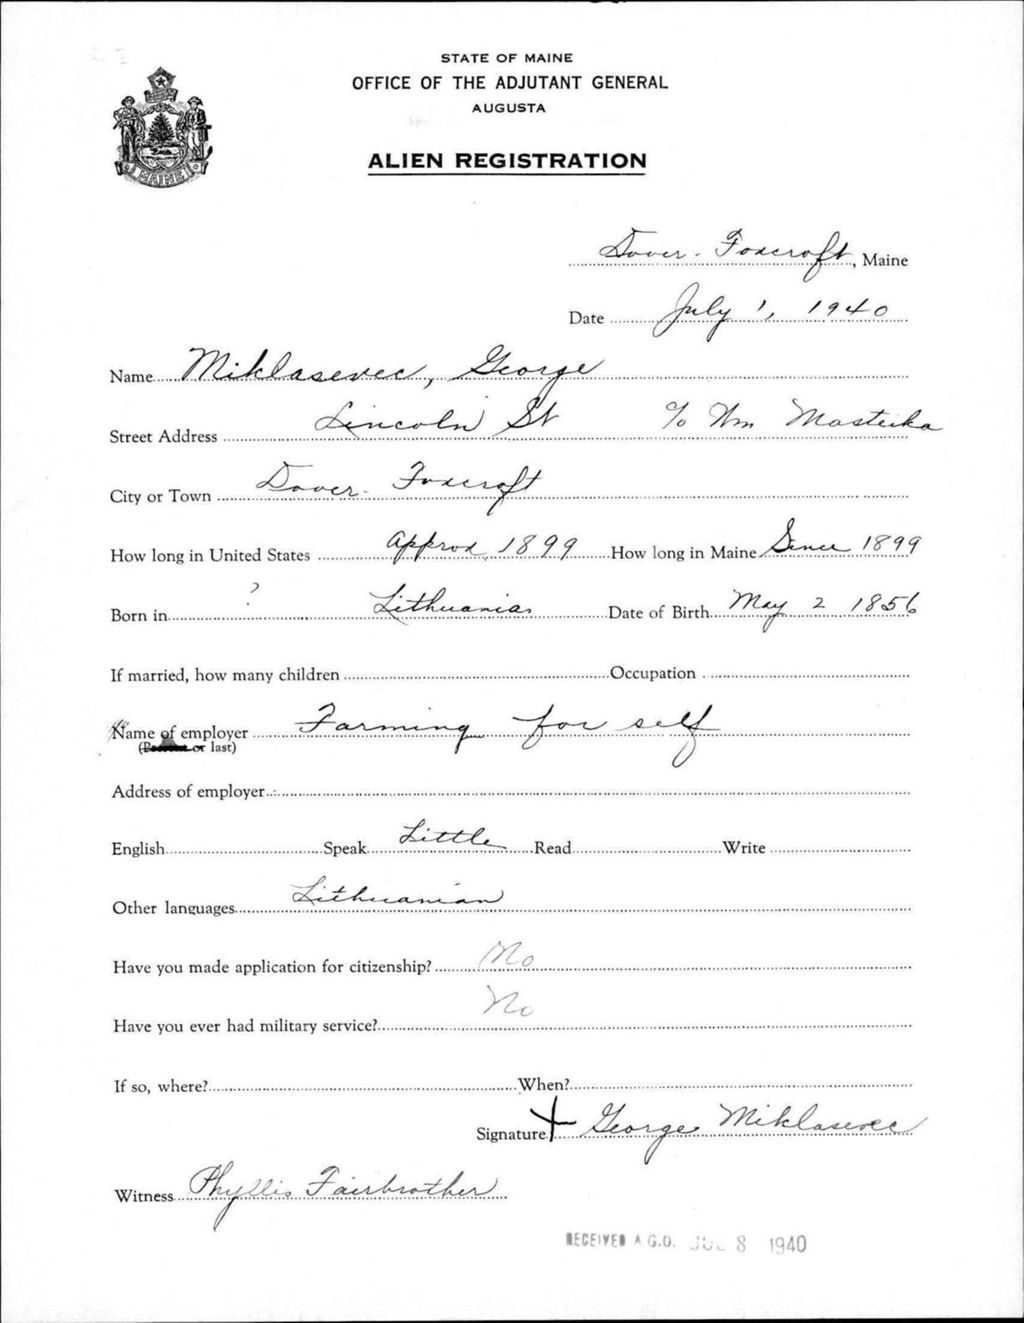 STATE OF MAINE
OFFICE OF THE ADJUTANT GENERAL
AUGUSTA
MAINE
ALIEN REGISTRATION
Dover-Foxcroft, Maine
Date July 1, 1940
Name Miklasevec, George
Street Address Lincoln St c/o Wm Masteika
City or Town Dover-Foxcroft
How long in United States Approx 1899 How long in Maine Since 1899
Born in ? Lithuania Date of Birth May 2 1856
If married, how many children Occupation
Name of employer Farming for self
or last)
Address of employer
English Speak Little Read Write
Other languages Lithuanian
Have you made application for citizenship? No
Have you ever had military service? No
If so, where? When?
Signature X George Miklasevec
Witness Phyllis Fairbrother
RECEIVED A.G.O. JUL 8 1940